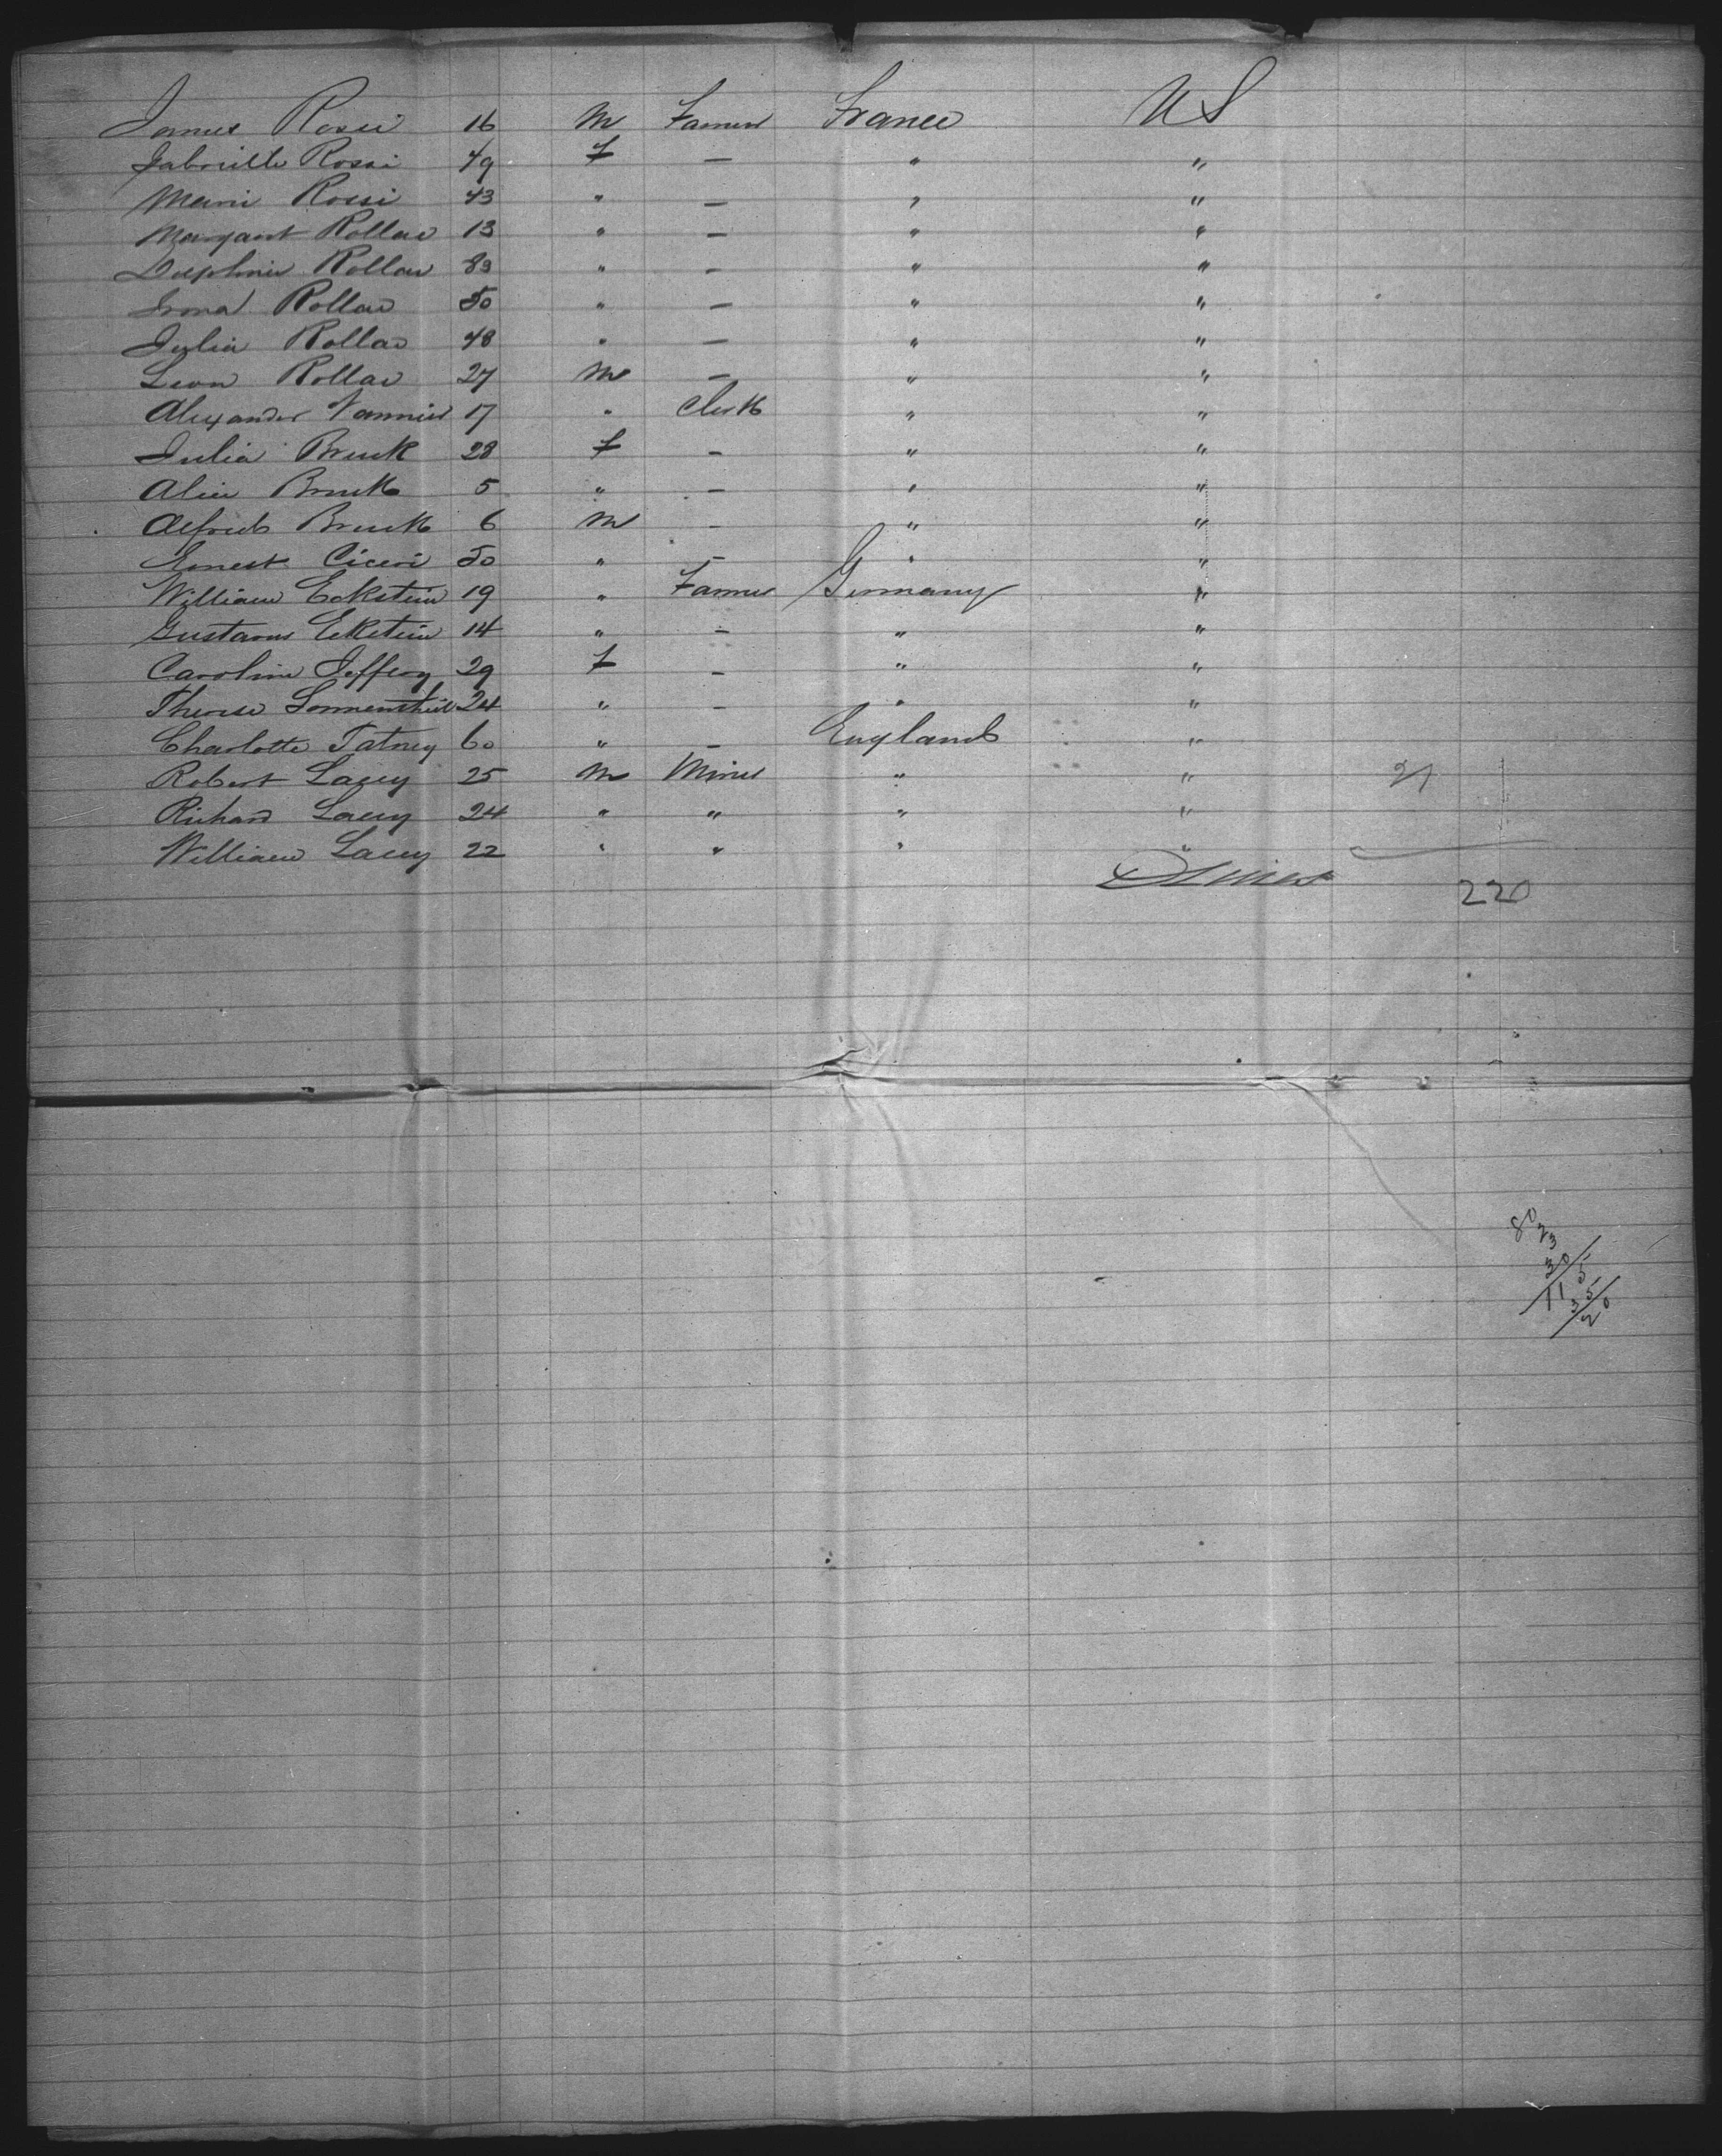 James Rossi 16 M Farmer France US
Gabrielle Rossi 49 F — " "
Marie Rossi 43 " — " "
Margaret Rollar 13 " — " "
Delphine Rollar 89 " — " "
Irma Rollar 50 " — " "
Julia Rollar 48 " — " "
Leon Rollar 27 M — " "
Alexander Vannier 17 " Clerk " "
Julia Bruck 28 F — " "
Alice Bruck 5 " — " "
Alfred Bruck 6 M — " "
Ernest Ciceri 50 " — " "
William Eckstein 19 " Farmer Germany "
Gustavus Eckstein 14 " — " "
Caroline Jeffery 29 F — " "
Therese 24 " — " "
Charlotte Tatney 60 " — England "
Robert Lacey 25 M Miner " " 21
Richard Lacey 24 " " " "
William Lacey 22 " " " "
220
80
23
30 5
11 5
3
20